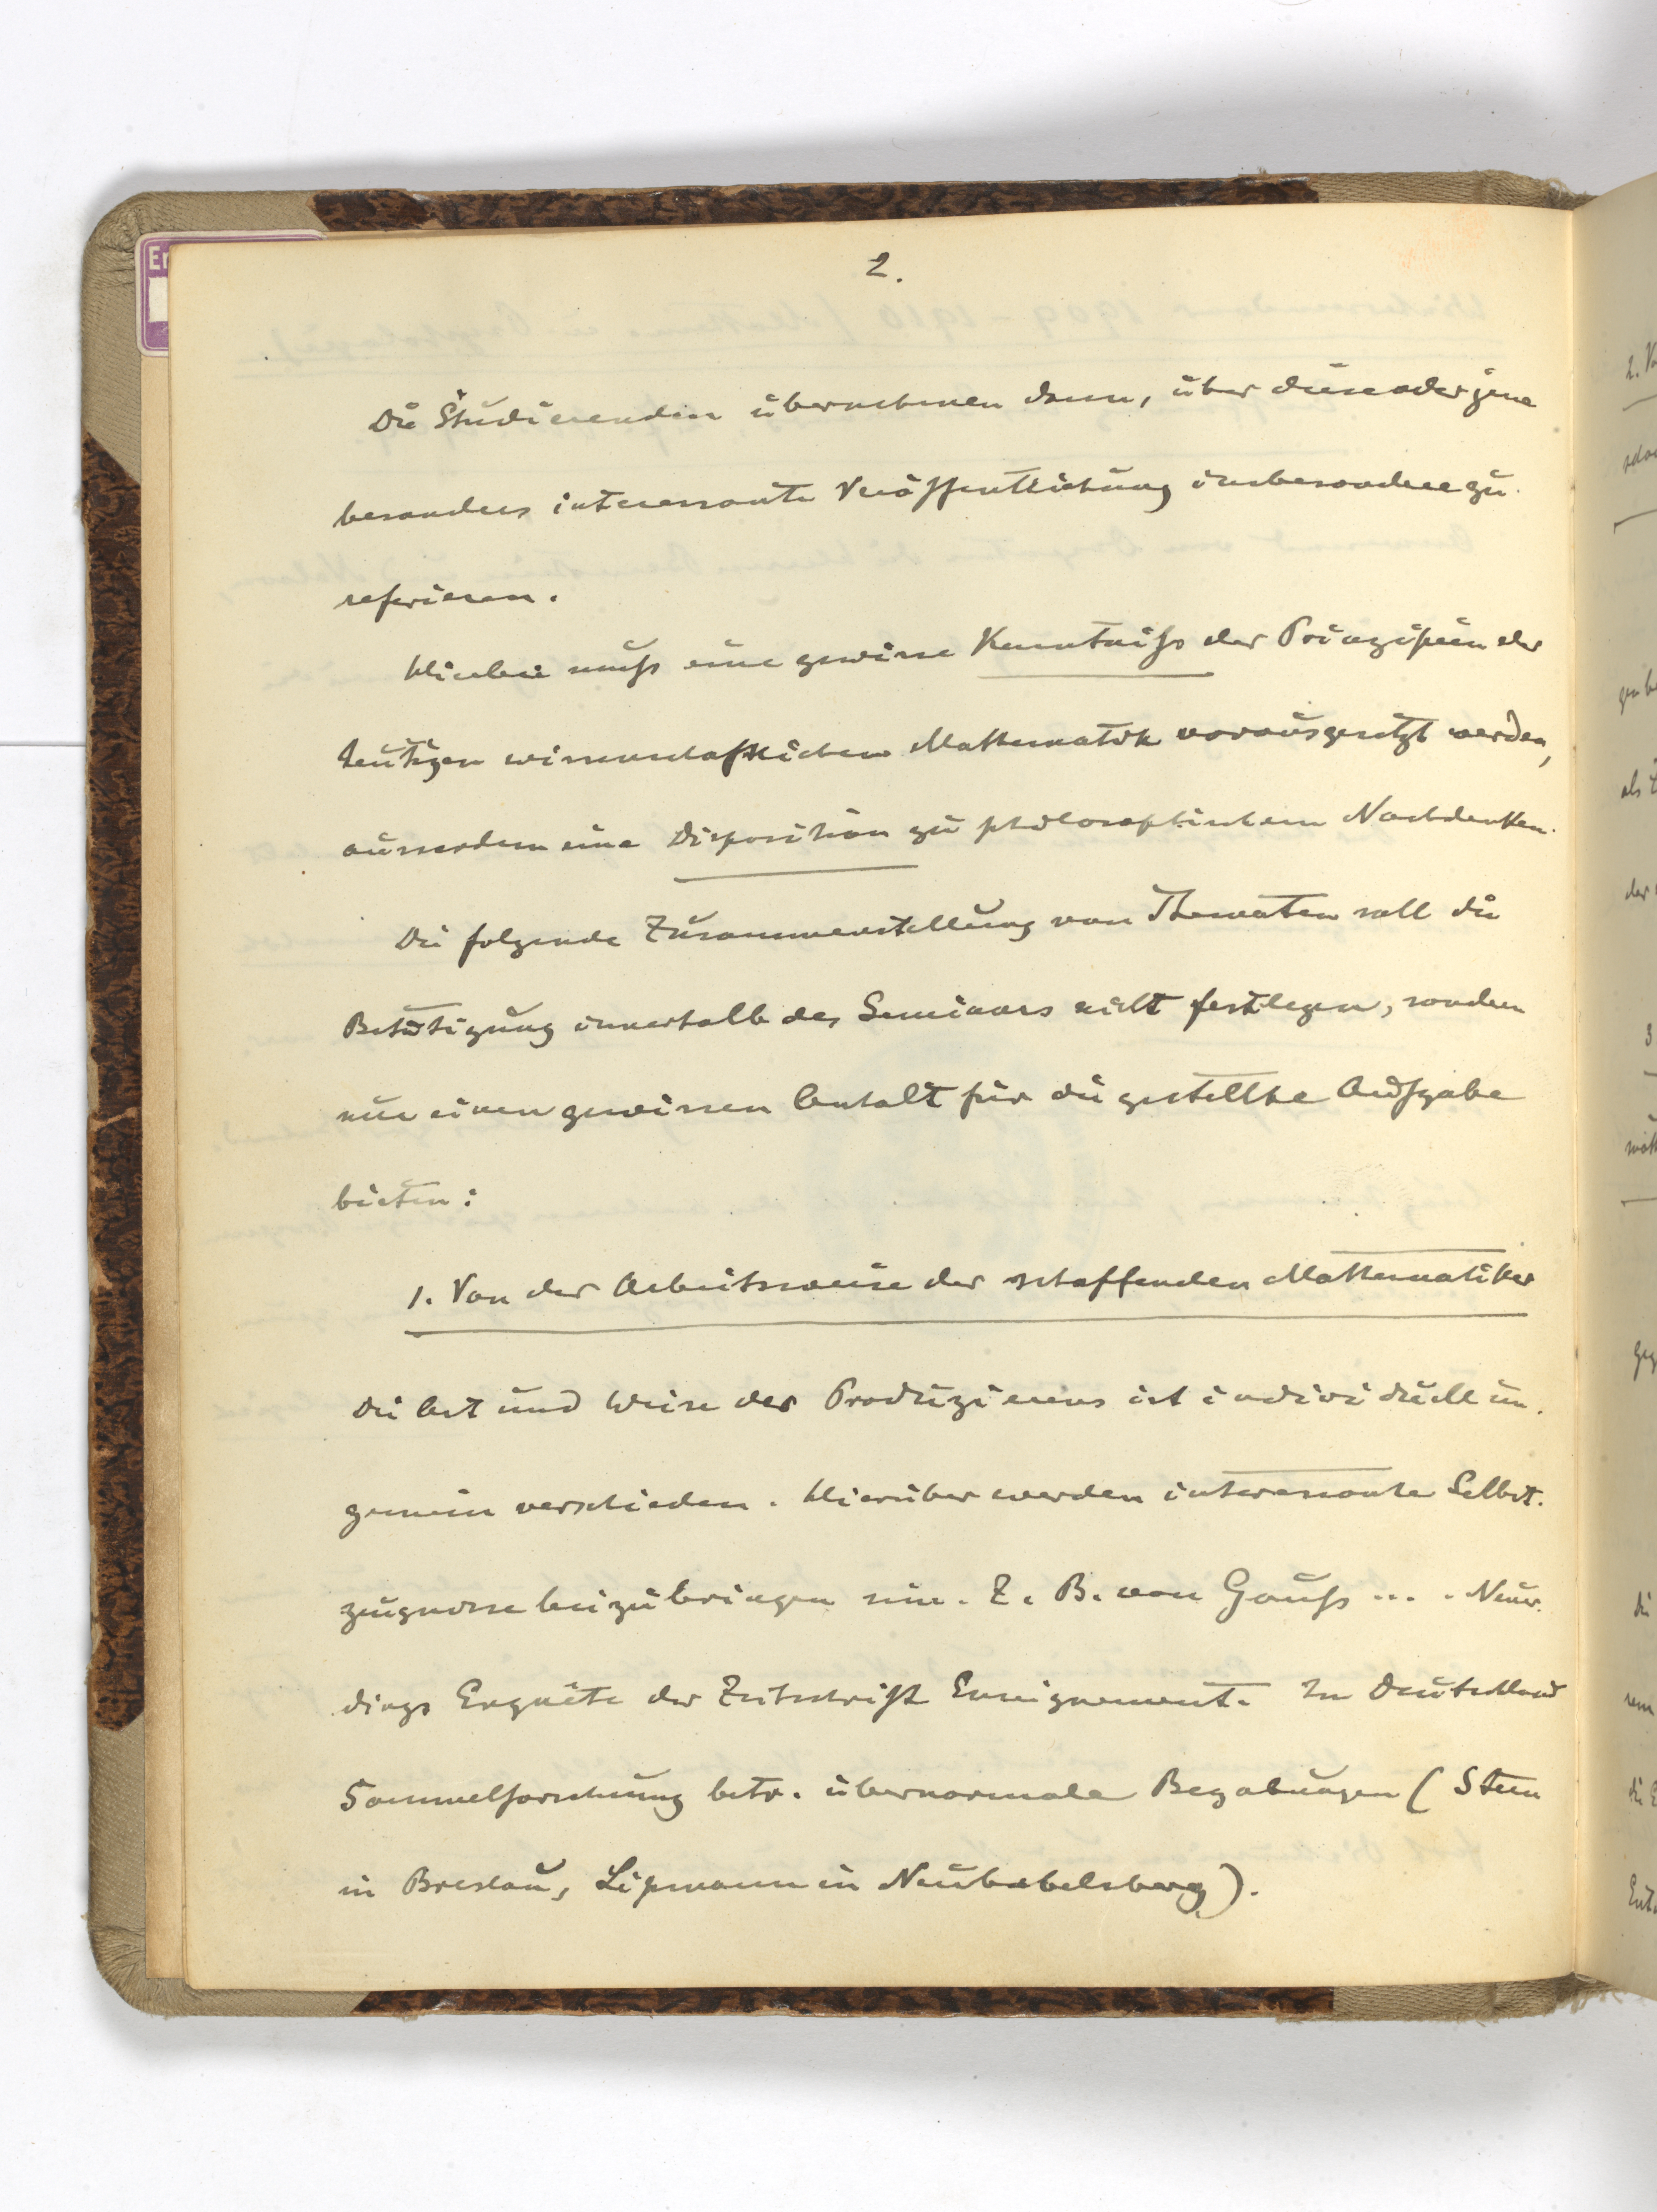 2.
Die Studierenden übernehmen dann, über diese oder jene
besonders interessante Veröffentlichung insbesondere zu
referieren.
Hierbei muß eine gewisse Kenntniß der Prinzipien der
heutigen wissenschaftlichen Mathematik vorausgesetzt werden,
ausserdem eine Disposition zu philosophischem Nachdenken.
Die folgende Zusammenstellung von Thematen soll die
Betätigung innerhalb des Seminars nicht festlegen, sondern
nur einen gewissen Anhalt für die gestellte Aufgabe
bieten:
1. Von der Arbeitsweise der schaffenden Mathematiker
Die Art und Weise des Produzierens ist individuell un-
gemein verschieden. Hierüber werden interessante Selbst-
zeugnisse beizubringen sein. Z. B. von Gauß ... . Neuer-
dings Enquête der Zeitschrift Enseignement. In Deutschland
Sammelforschung betr. übernormale Begabungen (Stern
in Breslau, Lipmann in Neubabelsberg).